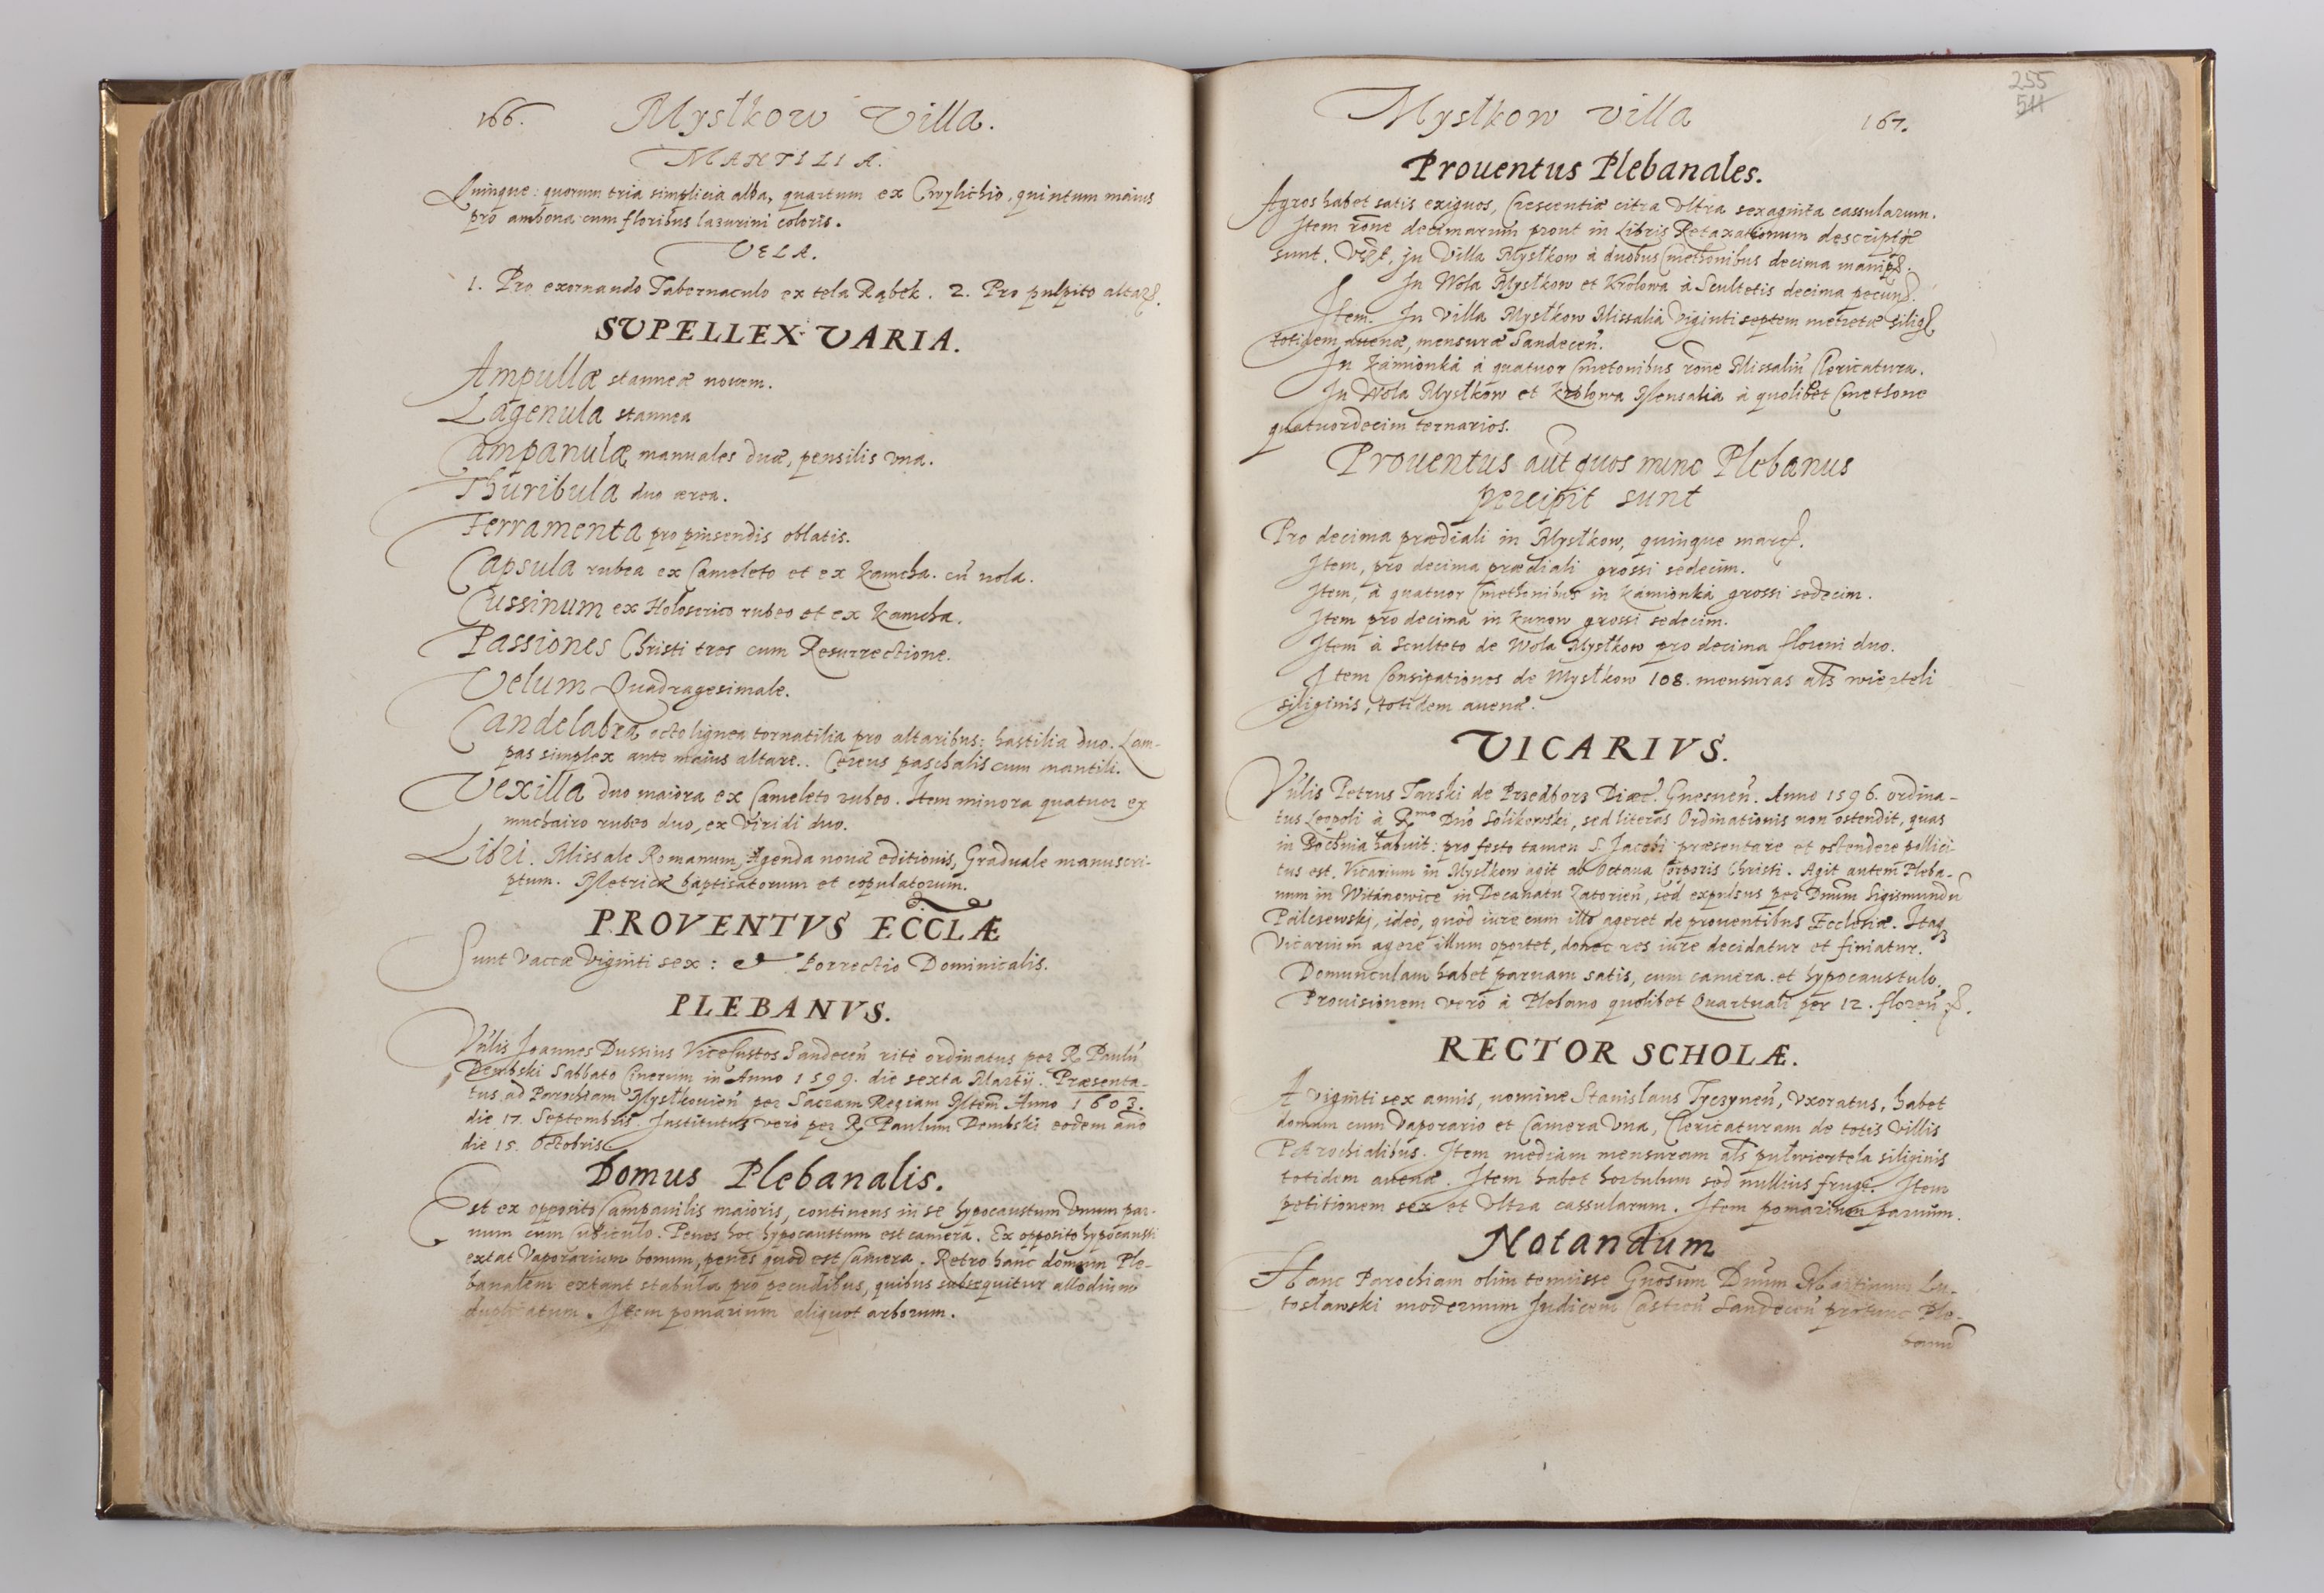 166. Mystkow Villa.
MANTILIA.
Quinque: quorum tria simplicia alba, quartum ex Cwylichio, quintum maius
pro ambona cum floribus lazurini coloris.
VELA.
1. Pro exornando Tabernaculo ex tela Rąbek. 2. Pro pulpito altar.
SUPELLEX VARIA.
Ampullæ stanneæ novem.
Lagenula stannea
Campanulæ manuales duæ, pensilis una.
Thuribula duo ærea.
Ferramenta pro pinsendis oblatis.
Capsula rubea ex Cameleto et ex Kamcha. cũ nola.
Cussinum ex Holoserico rubeo et ex Kamcha.
Passiones Christi tres cum Resurrectione.
Velum Quadragesimale.
Candelabra octo lignea tornatilia pro altaribus: hastilia duo. Lam-
pas simplex ante maius altare. Cereus paschalis cum mantili.
Vexilla duo maiora ex Cameleto rubeo. Item minora quatuor ex
muchairo rubeo duo, ex viridi duo.
Libri. Missale Romanum, Agenda novæ editionis, Graduale manuscri-
ptum. Metrica baptisatorum et copulatorum.
PROVENTVS ECCLÆ
Sunt vaccæ viginti sex: et Porrectio Dominicalis.
PLEBANVS.
Vñlis Joannes Dussius Vicecustos Sandeceñ rite ordinatus per R. Paulũ
Dembski Sabbato Cinerum in Anno 1599. die sexta Martij. Præsenta-
tus ad Parochiam Mystkovieñ per Sacram Regiam Mtem Anno 1603.
die 17. Septembris. Institutus vero per R. Paulum Dembski eodem año
die 15. Octobris
Domus Plebanalis.
Est ex opposito Campanilis maioris, continens in se hypocaustum unum par-
vum cum Cubiculo. Penes hoc hypocaustum est camera. Ex opposito hypocausti
extat Vaporarium bonum, penes quod est Camera. Retro hanc domum Ple-
banalem extant stabula pro pecudibus, quibus subsequitur allodium
duplicatum. Item pomarium aliquot arborum.
Mystkow villa 167.
255
511
Proventus Plebanales.
Agros habet satis exiguos, Crescentiæ citra ultra sexaginta cassularum.
Item rõne decimarum prout in Libris Retaxationum descriptæ
sunt. Vdzt, in Villa Mystkow à duobus Cmethonibus decima manip.
In Wola Mystkow et Krolowa à Scultetis decima pecun.
Item. In Villa Mystkow Missalia viginti septem metretæ silig
totidem avenæ, mensuræ Sandeceñ.
In Kamionka à quatuor Cmetonibus rõne Missaliũ Clericatura.
In Wola Mystkow et Krolowa Mensalia à quolibet Cmethone
quatuordecim ternarios.
Proventus aũt quos nunc Plebanus
percipit sunt
Pro decima prædiali in Mystkow, quinque marc.
Item, pro decima prædiali grossi sedecim.
Item, à quatuor Cmethonibus in Kamionka grossi sedecim.
Item pro decima in Kunow grossi sedecim.
Item à Sculteto de Wola Mystkow pro decima floreni duo.
Item Consipationes de Mystkow 108. mensuras als wierteli
siliginis, totidem avenæ.
VICARIVS.
Vñlis Petrus Tarski de Przedborz Diæc. Gnesneñ. Anno 1596. ordina-
tus Leopoli à Rmo Dño Solikowski, sed literas Ordinationis non ostendit, quas
in Bochnia habuit: pro festo tamen S. Jacobi præsentare et ostendere pollici-
tus est. Vicarium in Mystkow agit ab Octava Corporis Christi. Agit autem Pleba-
num in Witanowice in Decanatu Zatorieñ, sed expulsus per Dnum Sigismundũ
Palczewski, ideo, quod iure cum illo ageret de proventibus Ecclesiæ. Itaq3
Vicarium agere illum oportet, donec res iure decidatur et finiatur.
Domunculam habet parvam satis, cum camera et hypocaustulo.
Provisionem vero à Plebano quolibet Quartuali per 12. floreñ.
RECTOR SCHOLÆ.
A viginti sex annis, nomine Stanislaus Tyczyneñ, uxoratus, habet
domum cum Vaporario et Camera una, Clericaturam de totis villis
Parochialibus. Item mediam mensuram als pułwiertela siliginis
totidem avenæ. Item habet hortulum sed nullius frugi. Item
petitionem sex et ultra cassularum. Item pomarium parvum.
Notandum
Hanc Parochiam olim tenuisse Gnosum Dnum Martinum Lu-
tosławski modernum Judicem Castreñ Sandeceñ protunc Ple-
banũ